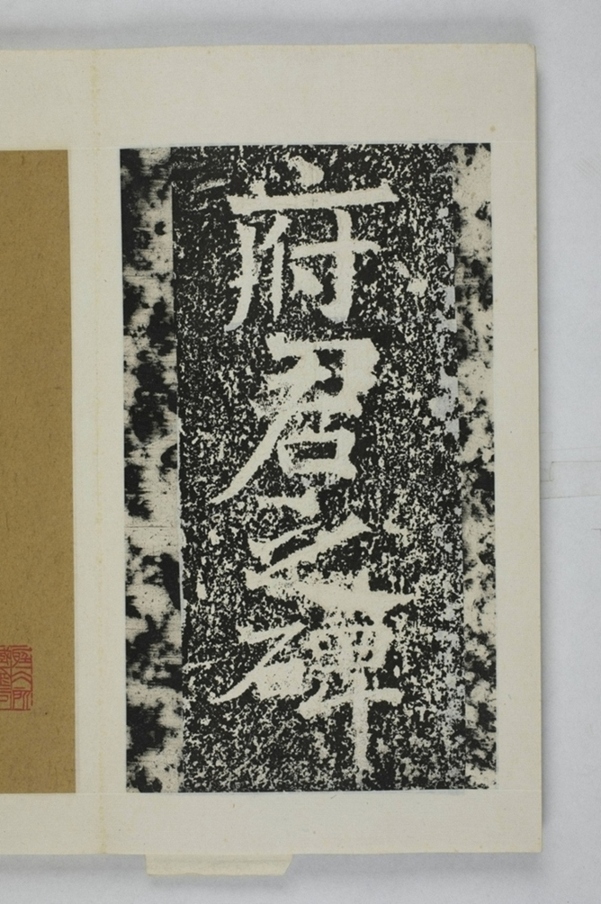 府君之碑